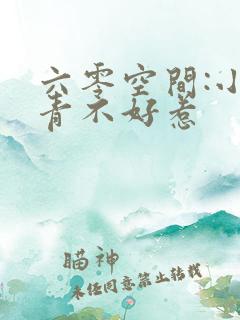 六零空間:小
青不好惹
瞄神
未经同意禁止转载